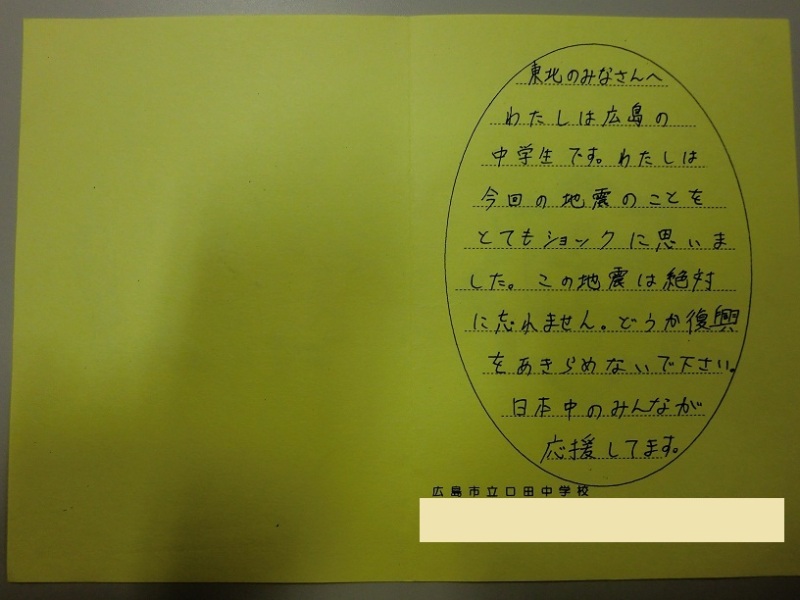 東北のみなさんへ
わたしは広島の
中学生です。わたしは
今回の地震のことを
とてもショックに思いま
した。この地震は絶対
に忘れません。どうか復興
をあきらめないで下さい。
日本中のみんなが
応援してます。
広島市立口田中学校